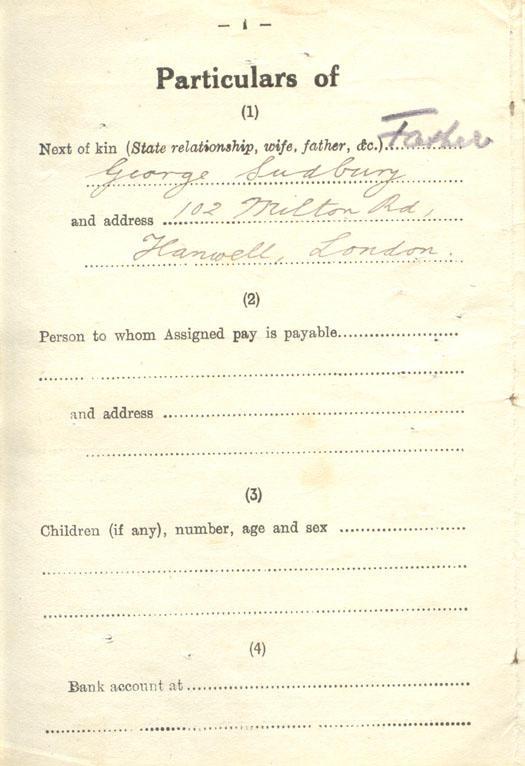 – 1 –
Particulars of
(1)
Next of kin (State relationship, wife, father, &c.) Father
George Sudbury
and address 102 Milton Rd,
Hanwell, London.
(2)
Person to whom Assigned pay is payable
and address
(3)
Children (if any), number, age and sex
(4)
Bank account at